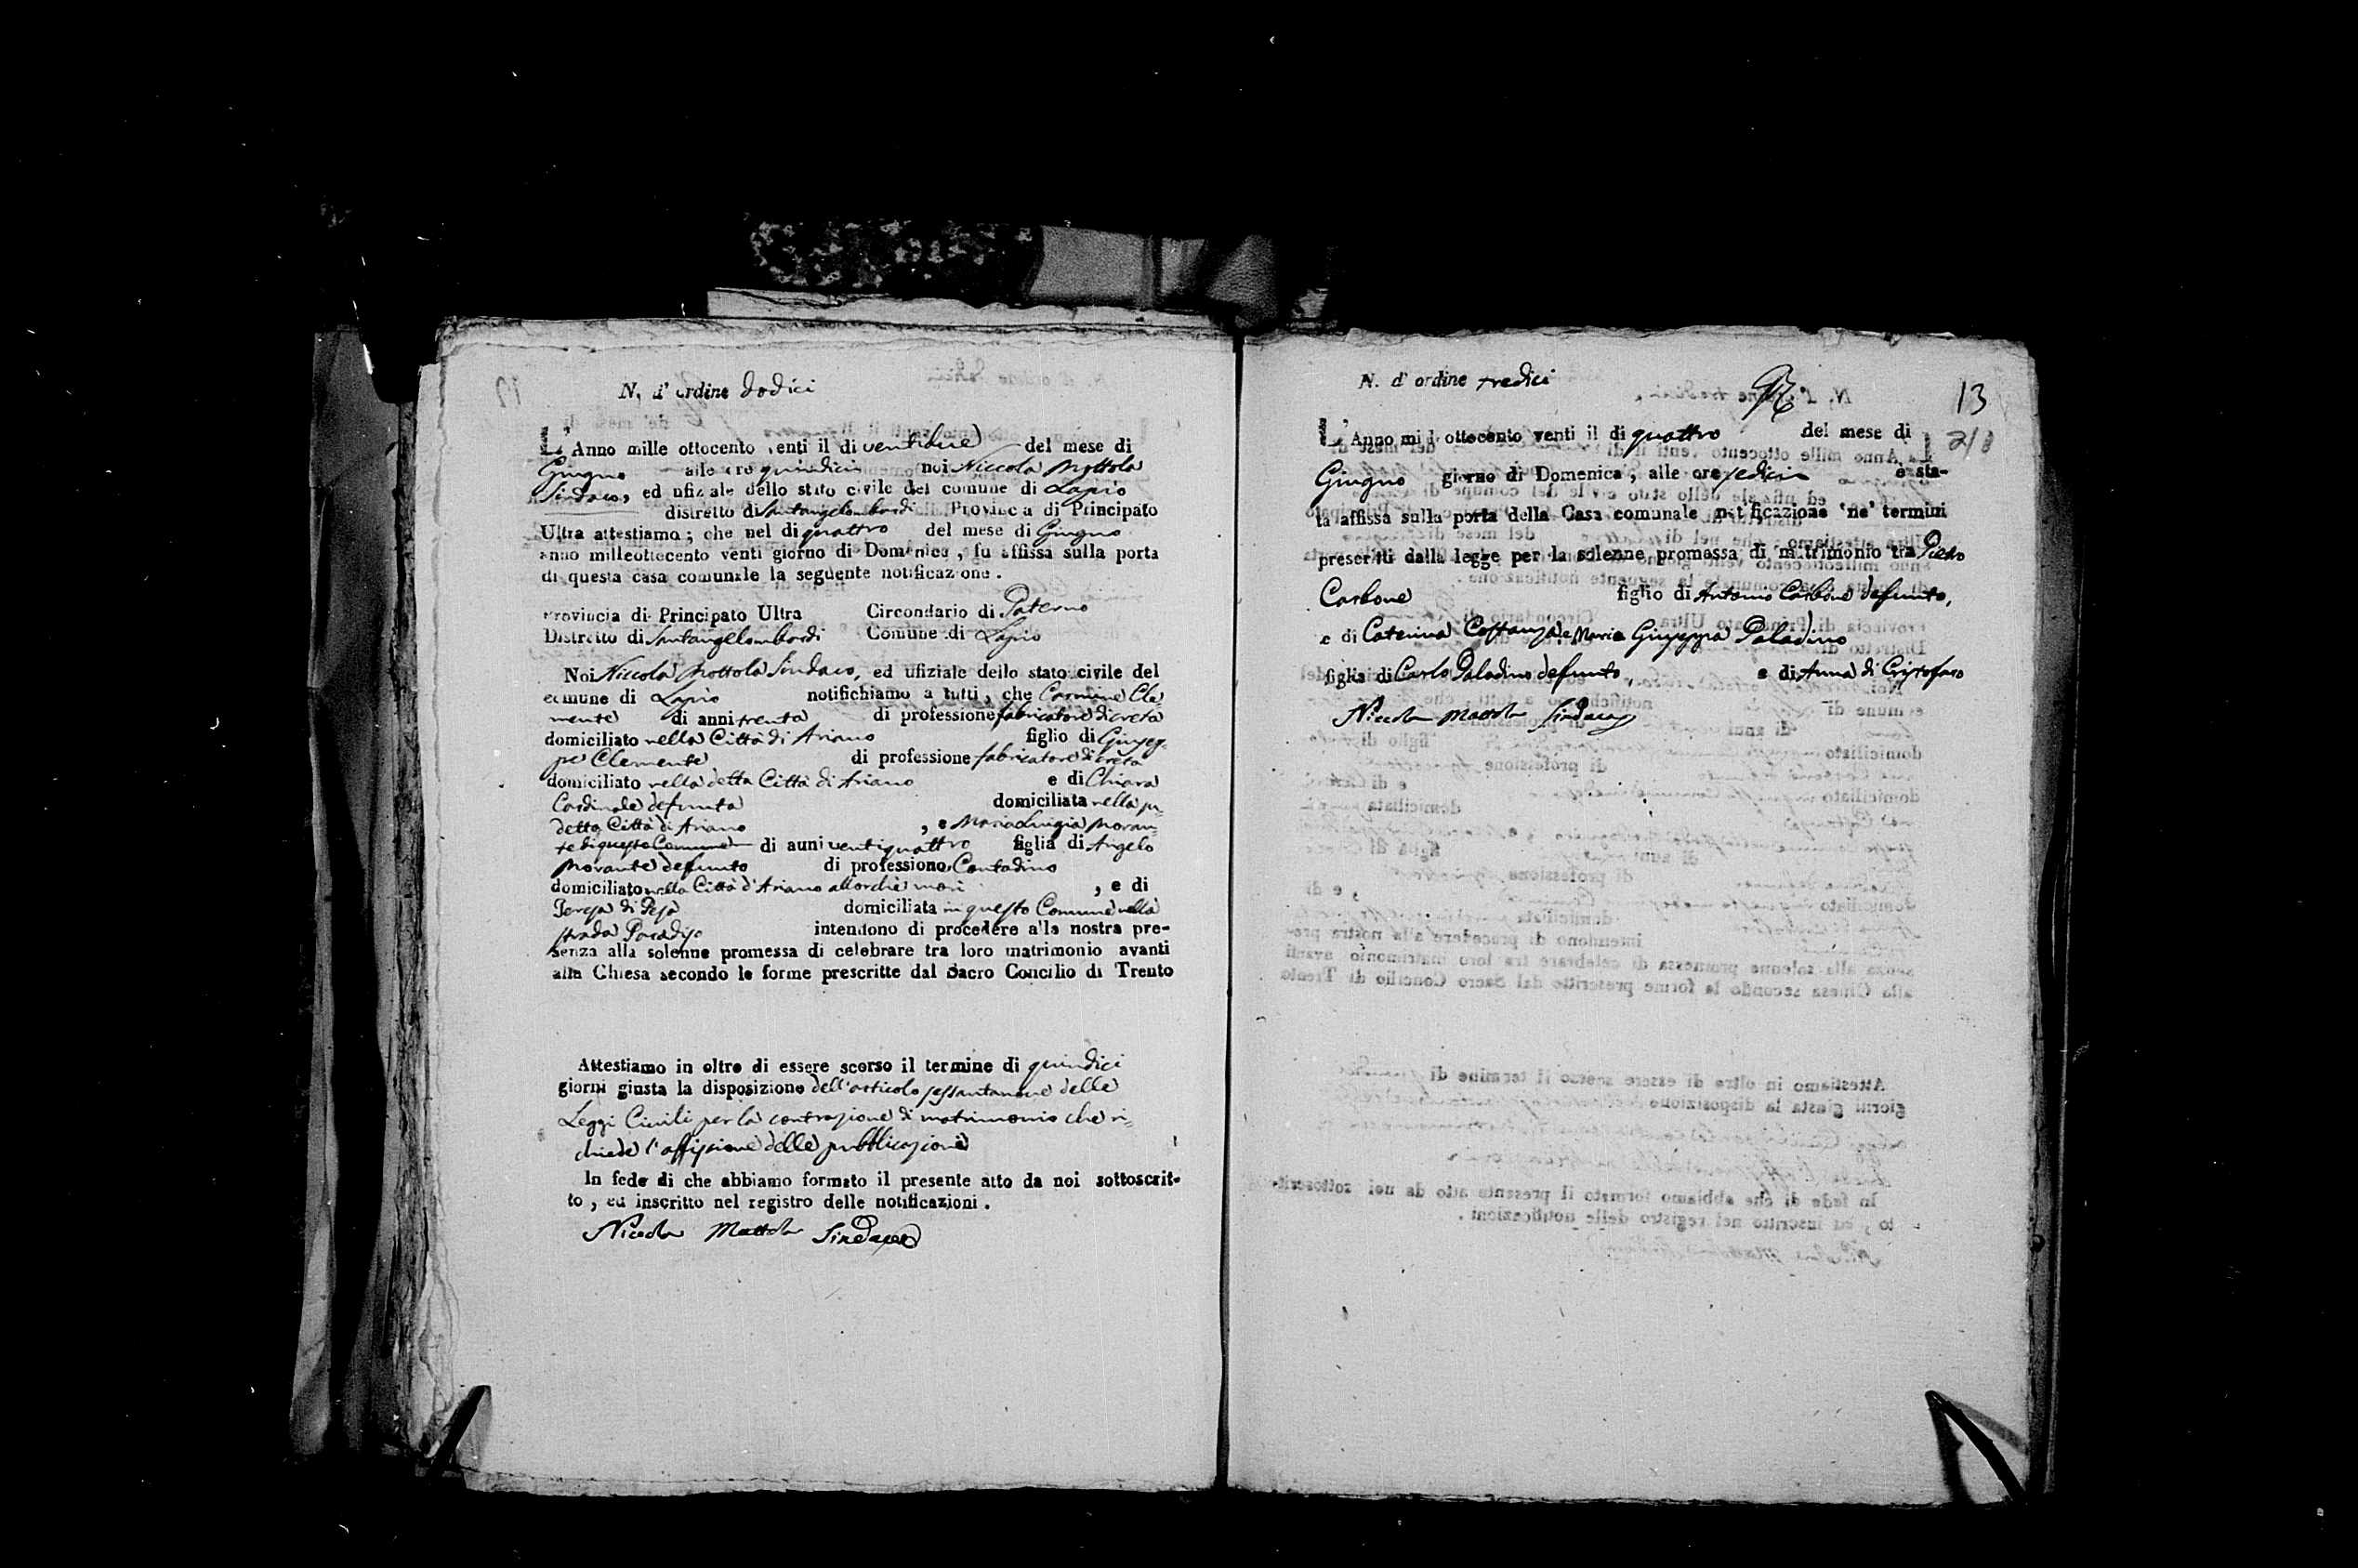 N. d' ordine dodici
L'Anno mille ottocento venti il di ventidue del mese di
Giugno alle ore quindici noi Niccola Mottola
Sindaco, ed ufiziale dello stato civile del comune di Lapio
distretto di Santangelombardi Provincia di Principato
Ultra attestiamo; che nel di quattro del mese di Giugno
anno milleottocento venti giorno di Domenica, fu affissa sulla porta
di questa casa comunale la seguente notificazione.
Provincia di Principato Ultra Circondario di Paterno
Distretto di Santangelombardi Comune di Lapio
Noi Niccola Mottola Sindaco, ed ufiziale dello stato civile del
comune di Lapio notifichiamo a tutti, che Carmine Cle-
mente di anni trenta di professione fabricatore di creta
domiciliato nella Città di Ariano figlio di Giusep-
pe Clemente di professione fabricatore di creta
domiciliato nella detta Città di Ariano e di Chiara
Cardinale defunta domiciliata nella su-
detta Città di Ariano , e Maria Luigia Moran-
te di questo Comune di anni ventiquattro figlia di Angelo
Morante defunto di professione Contadino
domiciliato nella Città d'Ariano allorchè morì , e di
Teresa di Pesa domiciliata in questo Comune nella
strada Paradiso intendono di procedere alla nostra pre-
senza alla solenne promessa di celebrare tra loro matrimonio avanti
alla Chiesa secondo le forme prescritte dal Sacro Concilio di Trento
Attestiamo in oltre di essere scorso il termine di quindici
giorni giusta la disposizione dell'articolo sessantanove delle
Leggi Civili per la contrazione di matrimonio che ri-
chiede l'affissione delle pubblicazioni
In fede di che abbiamo formato il presente atto da noi sottoscrit-
to, ed inscritto nel registro delle notificazioni.
Nicola Mottola Sindaco
N. d' ordine tredici
13
L'Anno mille ottocento venti il di quattro del mese di
Giugno giorno di Domenica, alle ore sedici è sta-
ta affissa sulla porta della Casa comunale notificazione ne' termini
prescritti dalla legge per la solenne promessa di matrimonio tra Pietro
Carbone figlio di Antonio Carbone defunto,
e di Caterina Costanza e Maria Giuseppa Paladino
figlia di Carlo Paladino defunto, e di Anna di Cristofaro
Niccola Mottola Sindaco